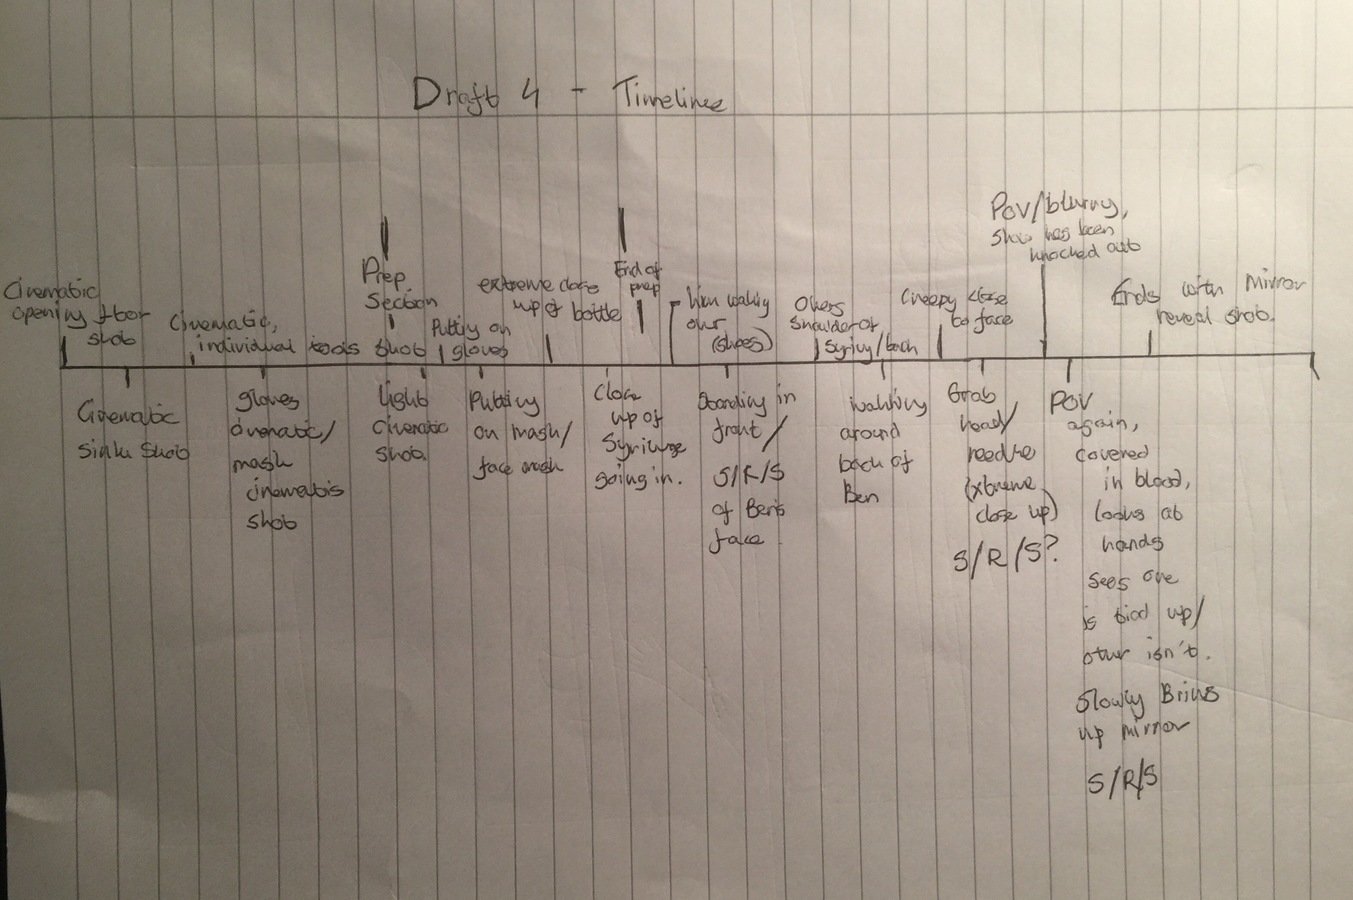 Draft 4 - Timeline
Cinematic
opening floor
shot
Cinematic
sink shot
Cinematic,
individual tools shot
gloves
cinematic/
mask
cinematic
shot
Prep
Section
light
Cinematic
shot.
Putting on
gloves
Putting
on mask/
face mask
extreme close
up of bottle
Close
up of
Syringe
going in.
End of
prep
him walking
over
(shoes)
Standing in
front/
S/R/S
of Ben's
face.
Overs
Shoulder of
Syring/back
walking
around
back of
Ben
Creepy close
to face
Grab
head/
needle
(xtreme
close up)
S/R/S?
POV/blurry,
Show has been
knocked out
POV
again,
covered
in blood,
looks at
hands
Sees one
is tied up/
other isn't.
Slowly Brings
up mirror
S/R/S
Ends with Mirror
reveal shot.